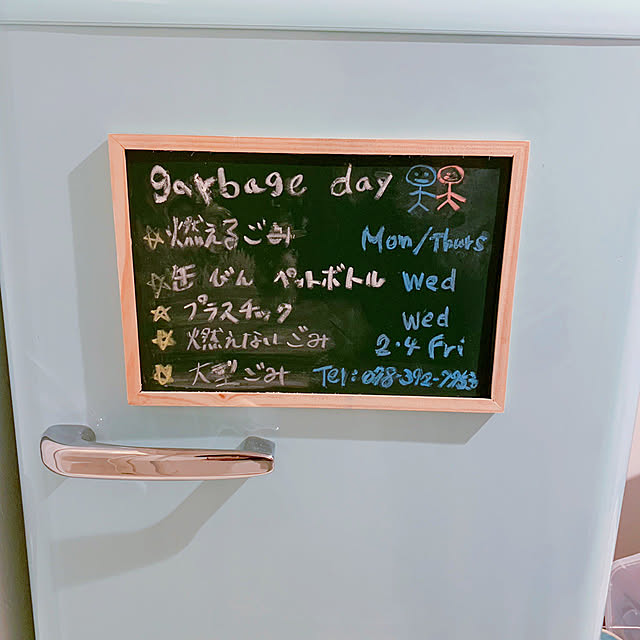 garbage day
燃えるごみ Mon/Thurs
缶 びん ペットボトル Wed
プラスチック Wed
燃えないごみ 2・4 Fri
大型ごみ Tel: 078-392-7953